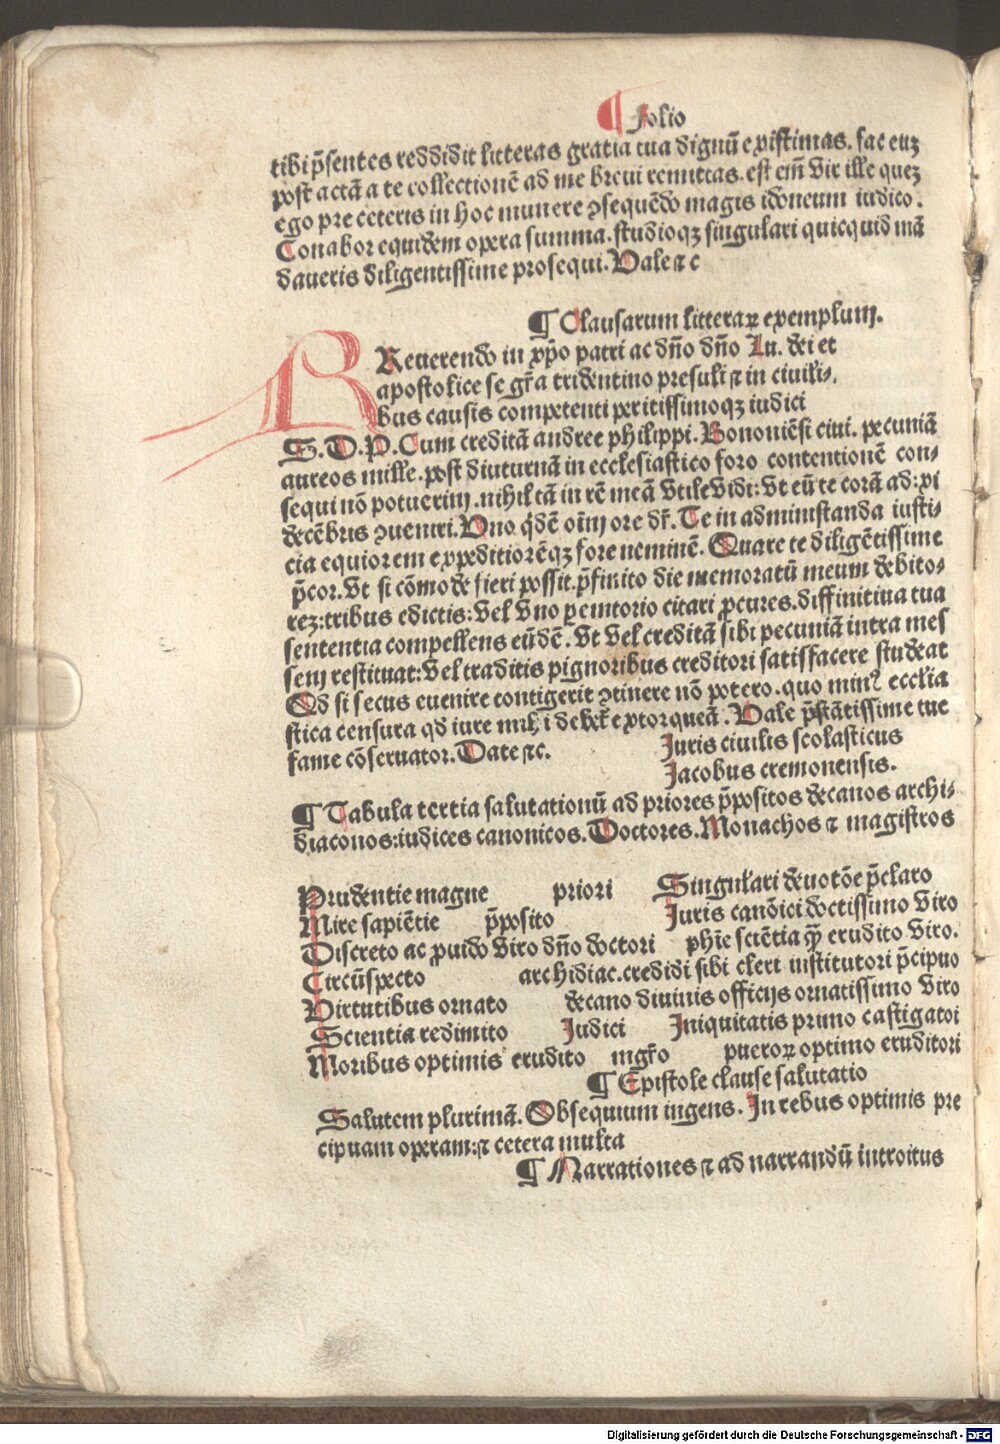 ¶ Folio
tibi p̄sentes reddidit litteras gratia tua dignū existimas. fac eūꝫ
post actā a te collectionē ad me breui remittas. est em̄ vir ille queꝫ
ego pre ceteris in hoc munere ꝯsequēdo magis idoneum iudico.
Conabor equidem opera summa. studioqꝫ singulari quicquid mā
daueris diligentissime prosequi. Vale ⁊ c
¶ Clausarum litteraꝝ exemplum.
REuerendo in xp̄o patri ac dño dño Iu. dei et
apostolice se gr̄a tridentino presuli ⁊ in ciuili⸗
bus causis competenti peritissimoqꝫ iudici
S. D. P. Cum creditā andree philippi. Bononiēsi ciui. pecuniā
aureos mille. post diuturnā in ecclesiastico foro contentionē con⸗
sequi nō potuerim. nihil tā in rē meā vtile vidi: vt eū te corā ad: xi
decēbris ꝯueniri. Vno q̇dē oīm ore dr̄. Te in administanda iusti⸗
cia equiorem expeditiorēqꝫ fore neminē. Quare te diligētissime
p̄cor. vt si cōmode fieri possit. p̄finito die memoratū meum debito⸗
reꝫ: tribus edictis: vel vno ꝑemtorio citari ꝓcures. diffinitiua tua
sententia compellens eūdē. vt vel creditā sibi pecuniā intra mes
sem restituat: vel traditis pignoribus creditori satisfacere studeat
Qd si secus euenire contigerit ꝯtinere nō potero. quo minꝰ ecclia
stica censura qd iure mihi debet̄ extorqueā. Vale p̄stātissime tue
fame cōseruator. Date ⁊c. Juris ciuilis scolasticus
Jacobus cremonensis.
¶ Tabula tertia salutationū ad priores p̄positos decanos archi⸗
diaconos: iudices canonicos. Doctores. Monachos ⁊ magistros
Prudentie magne priori Singulari deuotōe p̄claro
Mire sapiētie p̄posito Juris canōici doctissimo viro
Discreto ac ꝓuido viro dño doctori phīe sciētia ꝙ̄ erudito viro.
Circūspecto archidiac. credidi sibi cleri institutori p̄cipuo
Virtutibus ornato decano diuinis officijs ornatissimo viro
Scientia redimito Judici Iniquitatis primo castigatoi
Moribus optimis erudito mgr̄o pueroꝝ optimo eruditori
¶ Epistole clause salutatio
Salutem plurimā. Obsequium ingens. In rebus optimis pre
cipuam operam: ⁊ cetera multa
¶ Narrationes ⁊ ad narrandū introitus
Digitalisierung gefördert durch die Deutsche Forschungsgemeinschaft - DFG